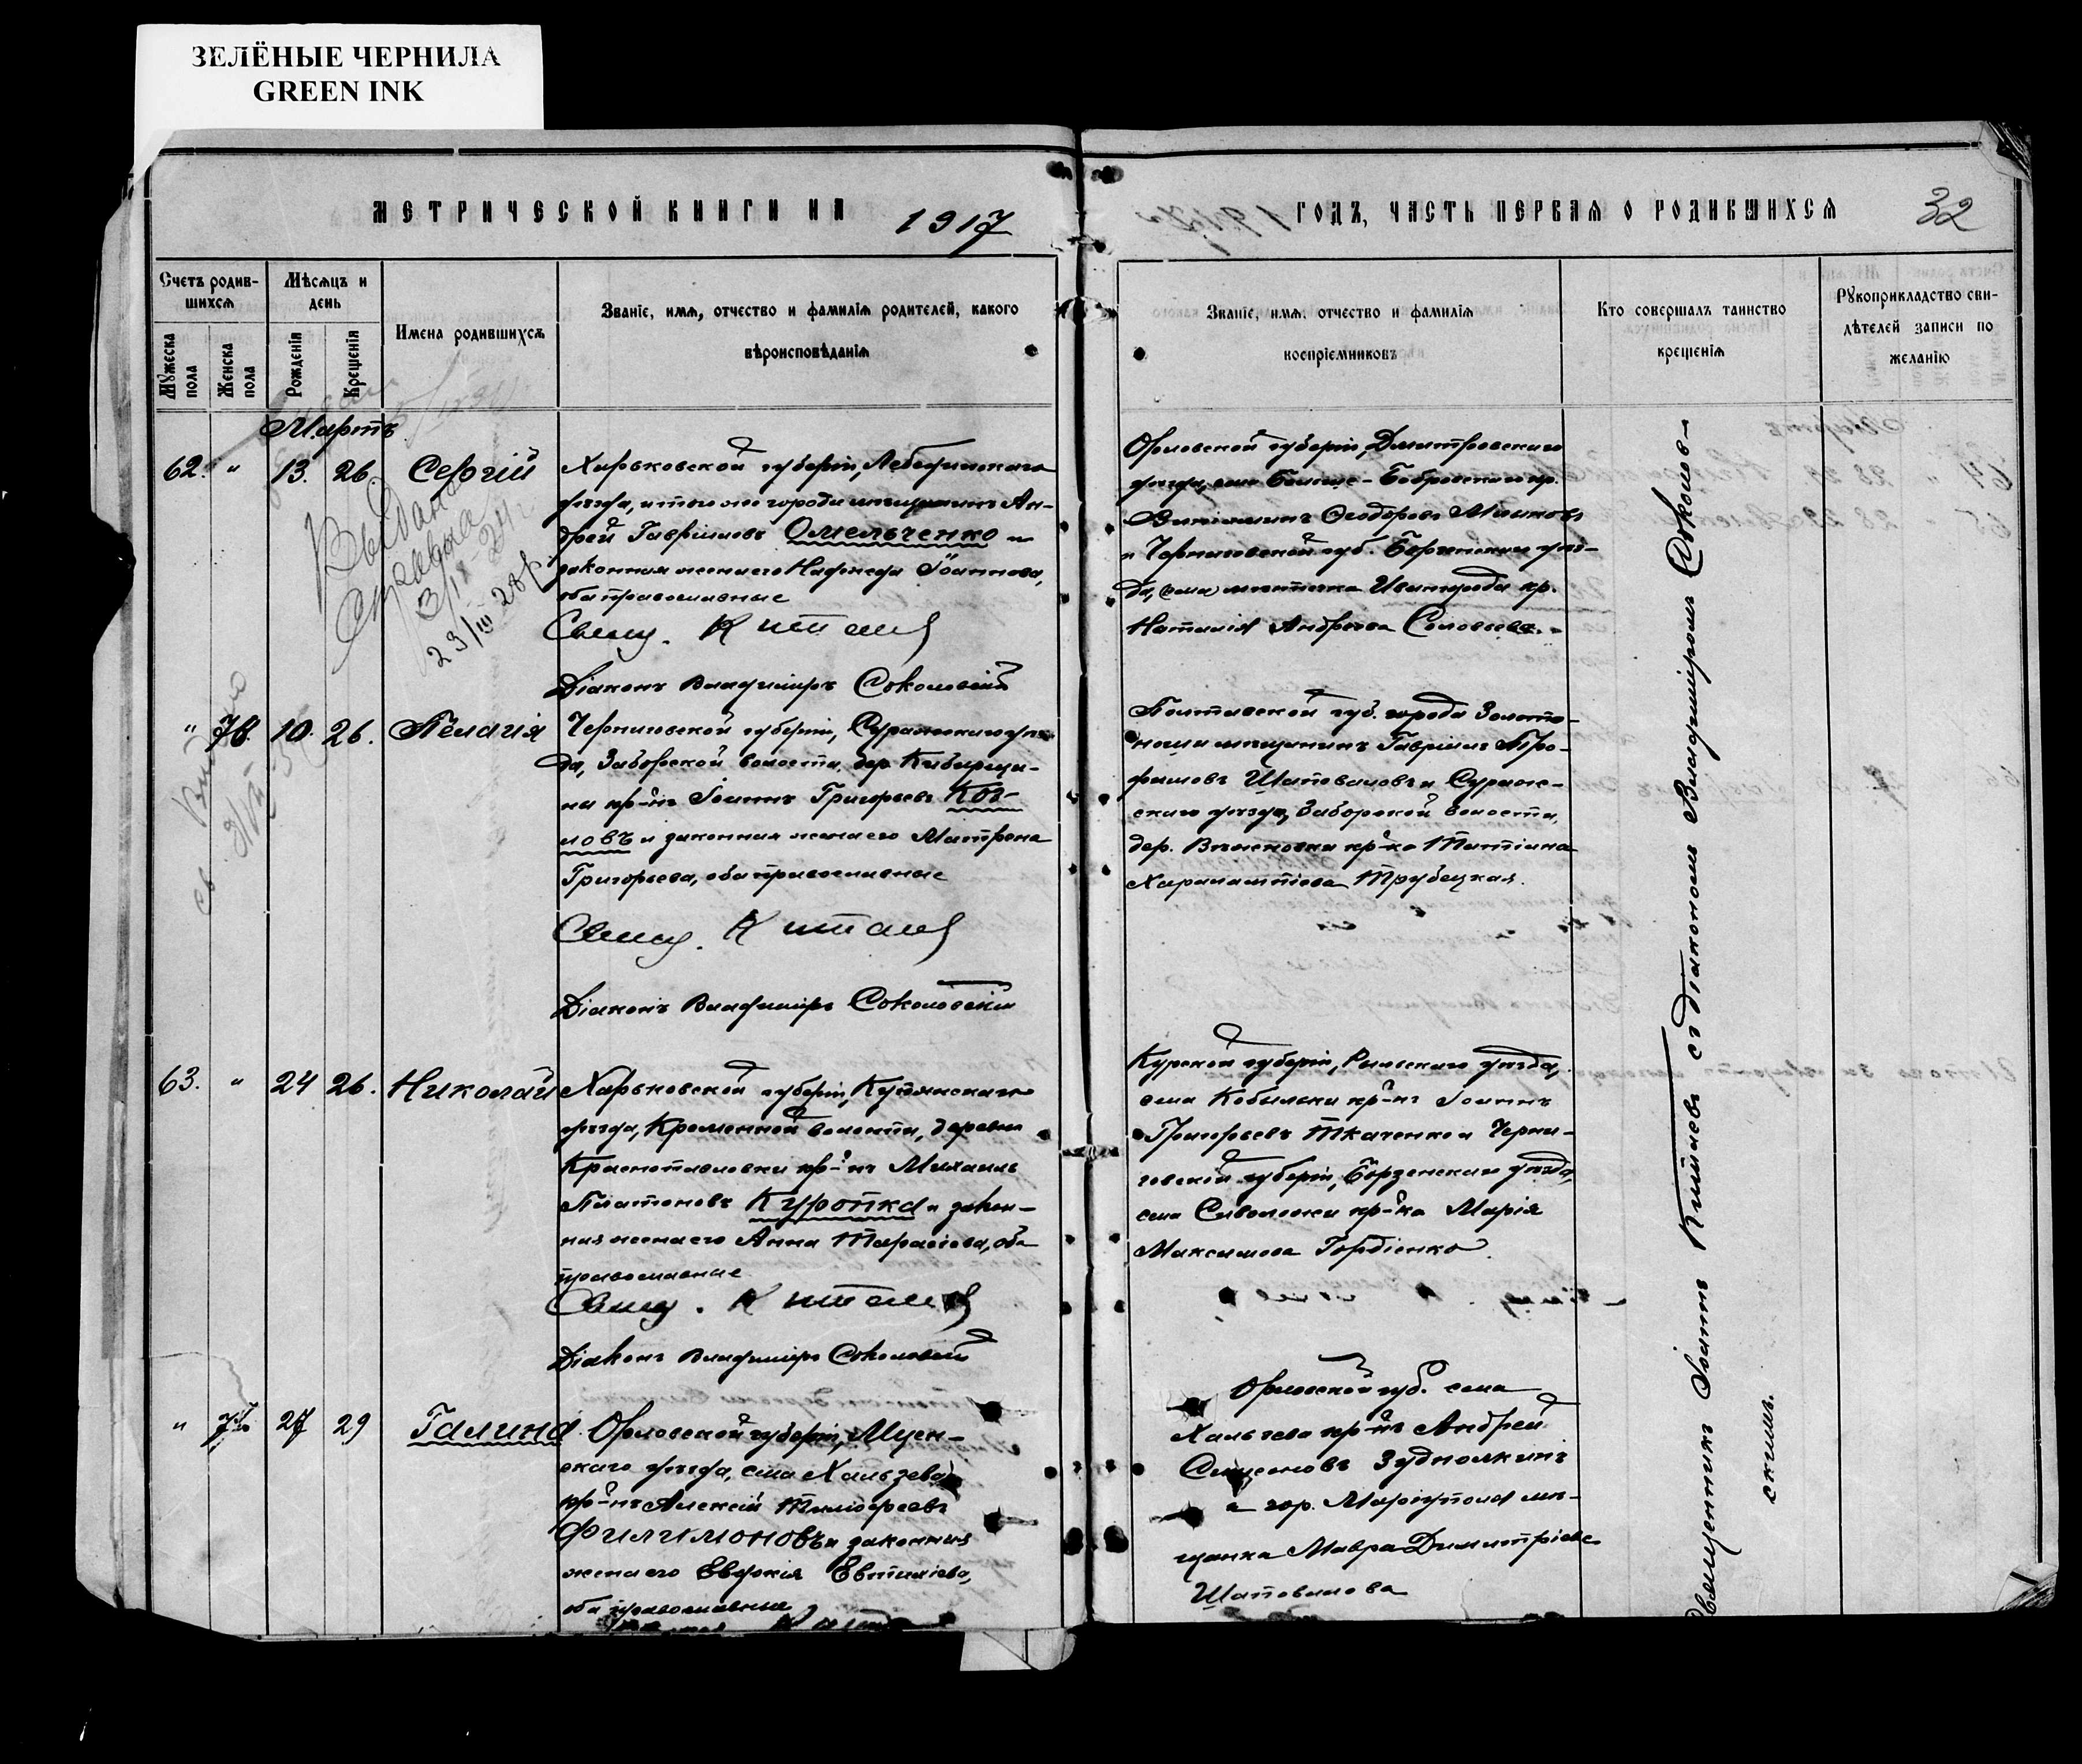 ЗЕЛЁНЫЕ ЧЕРНИЛА
GREEN INK
МЕТРИЧЕСКОЙ КНИГИ НА 1917
Счетъ родившихся
Мѣсяцъ и день
Мужеска пола
Женска пола
Рожденія
Крещенія
Имена родившихся
Званіе, имя, отчество и фамилія родителей, какого
вѣроисповѣданія
Мартъ
62. " 13. 26. Сергій
Харьковской губерніи, Лебединскаго
уѣзда, и того же города мѣщанинъ Ан-
дрей Гавріиловъ Омельченко и
законная жена его Надежда Іоаннова,
оба православные
Свящ. Китаевъ
Діаконъ Владиміръ Соколовскій
Выдана
справка
23/III 28 г.
" 70. 10. 26. Пелагія
Черниговской губерніи, Суражскаго уѣз-
да, Заборской волости, дер.
кр-нъ Іоаннъ Григорьевъ Коз-
ловъ и законная жена его Матрона
Григорьева, оба православные
Свящ. Китаевъ
Діаконъ Владиміръ Соколовскій
63. " 24 26. Николай
Харьковской губерніи, Купянскаго
уѣзда, Кременной волости, деревни
Краснопавловки кр-нъ Михаилъ
Платоновъ Куропка и закон-
ная жена его Анна Тарасіева, оба
православные
Свящ. Китаевъ
Діаконъ Владиміръ Соколовскій
" 71. 27 29 Галина
Орловской губерніи, Мцен-
скаго уѣзда, села
кр-нъ Алексій Тимофеевъ
Филимоновъ и законная
жена его Евдокія Евтихіева,
оба православные
ГОДЪ, ЧАСТЬ ПЕРВАЯ О РОДИВШИХСЯ
32
Званіе, имя, отчество и фамилія
воспріемниковъ
Кто совершалъ таинство
крещенія
Рукоприкладство сви-
дѣтелей записи по
желанію
Орловской губерніи, Дмитровскаго
уѣзда, села Больше-Бобровскаго кр.
Ѳеодоровъ
и Черниговской губ. Борзенскаго уѣз-
да, (села) мѣстечка Ивангорода кр.
Наталія Андреева Соловьева.
Полтавской губ. города Золото-
ноши мѣщанинъ Гавріилъ Тро-
фимовъ Шаповаловъ и Сураж-
скаго уѣзда, Заборской волости,
дер. кр-ка Татіана
Харлампіева Трубецкая.
Курской губерніи, Рыльскаго уѣзда,
села Кобыльки кр-нъ Іоаннъ
Григорьевъ Ткаченко и Черни-
говской губерніи, Борзенскаго уѣзда,
села Сиволожи кр-ка Марія
Максимова Гордіенко.
Орловской губ. села
кр-нъ Андрей
Симеоновъ
и гор. Маріуполя мѣ-
щанка Мавра Димитріева
Шаповалова
Священникъ Іоаннъ Китаевъ съ діакономъ Владиміромъ Соколов-
скимъ.